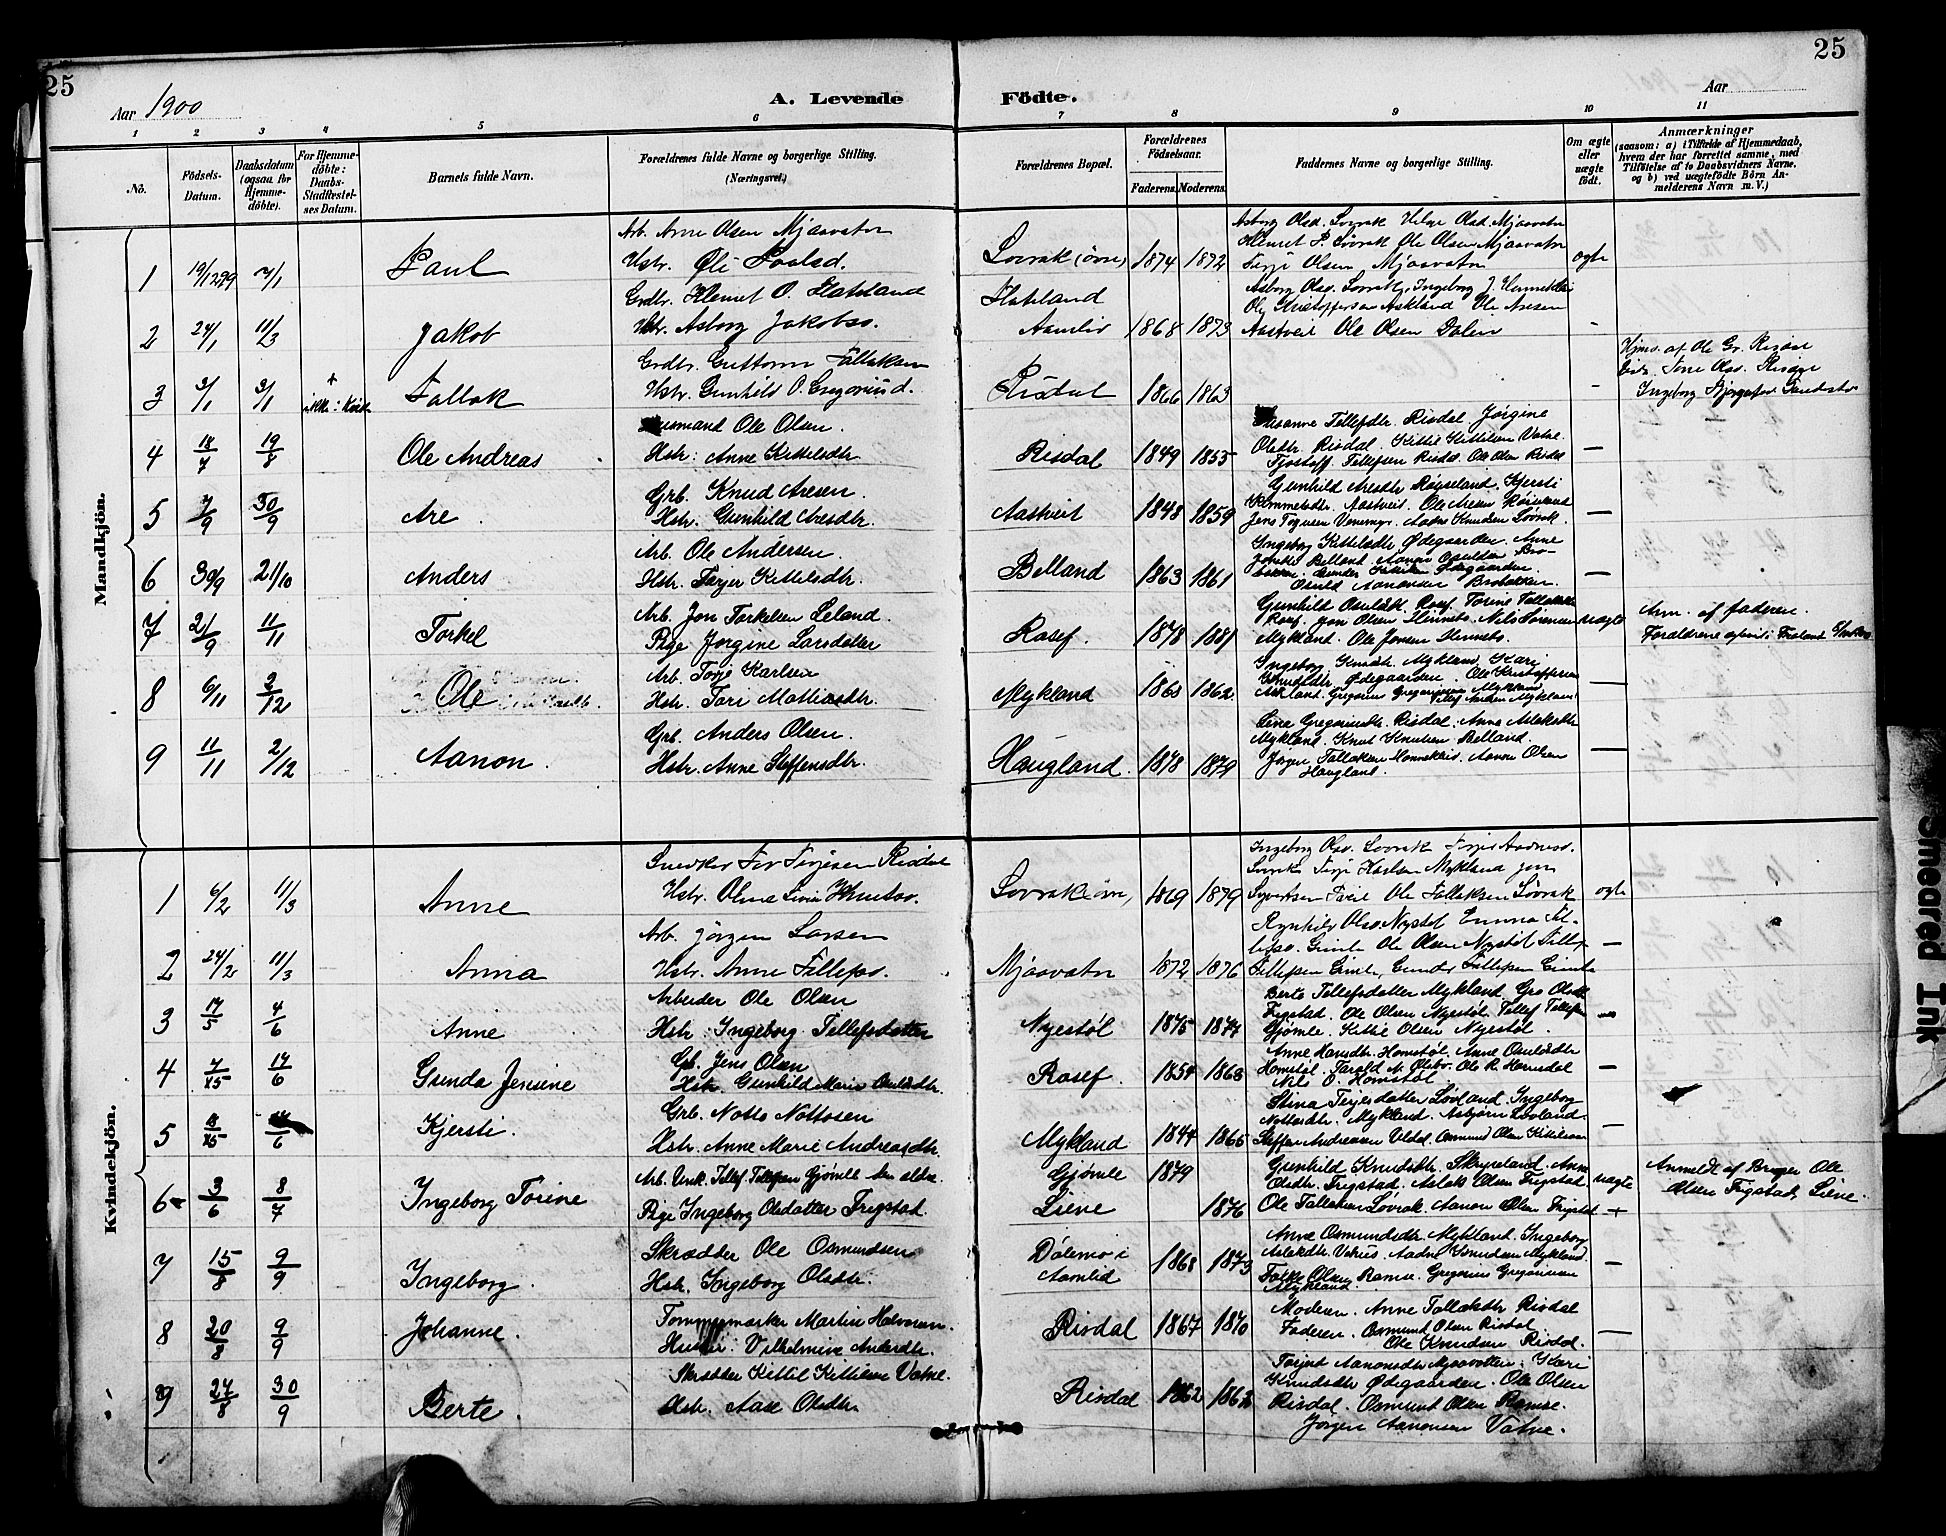 25
25
Aar 1900
A. Levende Födte.
Aar
1 2 3 4 5 6 7 8 9 10 11
No.
Födsels-Datum.
Daabsdatum (ogsaa for Hjemme-döbte).
For Hjemme-döbte: Daabs-Stadfestel-ses Datum.
Barnets fulde Navn.
Forældrenes fulde Navne og borgerlige Stilling. (Næringsvei.)
Forældrenes Bopæl.
Forældrenes Födselsaar.
Faderens. Moderens.
Faddernes Navne og borgerlige Stilling.
Om ægte eller uægte födt.
Anmærkninger (saasom: a) i Tilfælde af Hjemmedaab, hvem der har forrettet samme, med Tilföielse af to Daabsvidners Navne, og b) ved uægtefödte Börn An-melderens Navn m. V.)
Mandkjön.
1 19/12 99 7/1 Paul
Arb. Arne Olsen Mjaavatn
Hstr. Øli Paalsd.
Lovrak (øvre) 1874 1872
Asborg Olsd. Lovrak Helge Olsd. Mjaavatn
Klemet P. Lövrak Ole Olsen Mjaavatn
Terje Olsen Mjaavatn
ægte
2 24/1 11/3 Jakob
Grdbr. Klemet O. Hateland
Hstr. Asborg Jakobsd.
Hateland
Aamliv 1868 1873
Asborg Olsd. Lovrak, Ingeborg J.
Ole Kristoffersen Askland Ole Aresen
Aastveit Ole Olsen Dalen
-
3 3/1 3/1 Tallak
Grdbr. Guttorm Tallaksen
Hstr. Gunhild O. Gregoriusd.
Risdal 1866 1863
-
Hjmd. af Ole Gr. Risdal
Tone Olsd. Risdal
Ingeborg
4 18/7 19/8 Ole Andreas
Husmand Ole Olsen.
Hstr: Anne Kittelsdtr
Risdal 1849 1855
Susanne Tellefdtr. Risdal Jørgine
Olsdtr Risdal. Kittil Kittilsen Vatne.
Tjostolf Tellefsen Risdal. Ole Olsen Risdal
—
5 7/9 30/9 Are.
Grb. Knud Aresen.
Hstr. Gunhild Aresdtr.
Aastveit 1848 1859
Gunhild Aresdtr Røiseland. Kjersti
Aastveit. Ole Aresen Röiseland
Jens Torjusen Venemyr. Aadne Knudsen Lövrak.
—
6 30/9 21/10 Anders
Arb. Ole Andersen.
Hstr. Torjer Kittelsdtr.
Belland 1863 1861
Ingeborg Kittelsdtr. Ødegaarden. Anne
Belland. Aanon Osuldsen Bro-
bakken. Gunder Ødegaarden.
Osuld Aanonsen Brobakken.
—
7 21/9 11/11 Torkel
Arb. Jon Torkelsen Leland.
Pige Jørgine Larsdatter
Rosef. 1878 1881
Gunhild Osuldsdt. Rosef. Torine Tallaksdtr
Rosef. Jon Olsen Nils Sørensen
Mykland. Ole Jonsen
uægte
Anm. af faderen.
Forældrene Froland
8 6/11 2/12 Ole
Arb. Torje Karlsen
Hstr. Tori Mathiasdtr.
Mykland 1863 1862
Ingeborg Knudsdtr. Mykland Kari
Knudsdtr Ødegaarden. Ole Kristoffersen
Askland. Gregorius Gregoriussen Mykland
Tellef Andersen Mykland
—
9 11/11 2/12 Aanon.
Grb. Anders Olsen.
Hstr. Anne Steffensdtr.
Haugland. 1878 1879
Lina Gregoriusdtr. Risdal. Anna Aslaksdtr
Mykland. Knut Knutsen Belland.
Jörgen Tallaksen Aanon Olsen
Haugland.
—
Kvindekjön.
1 6/2 11/3 Anne
Snedker Tor Terjesen Risdal
Hstr. Olina Knutsd.
Lovrak (øvre) 1869 1879
Ingeborg Olsd. Lovrak Torjer Aadnesd.
Lovrak Terje Karlsen Mykland Jon
Ole Tallaksen Lövrak
ægte
2 24/2 11/3 Anna
Arb. Jörgen Larsen
Hstr. Anne Tellefsd.
Mjaavatn 1872 1876
Ragnhild Olsd. Nystöl Emma Tel-
lefsd. Gimle Ole Olsen Nystöl Tellef
Tellefsen Gimle, Gunder Tellefsen Gimle
—
3 17/5 4/6 Anne
Arbeider Ole Olsen
Hstr: Ingeborg Tellefsdatter
Nyestöl 1875 1877
Berte Tellefsdatter Mykland Gro Olsdtr
Frigstad. Ole Olsen Nyestöl. Tellef Tellefsen
Gjömle. Kittil Olsen Nyestöl.
—
4 7/5 17/6 Gunda Jensine
Gb. Jens Olsen
Hstr Gunhild Marie Osuldsdtr.
Rosef. 1854 1863
Anne Hansdtr. Homstøl. Anne Osuldsdtr
Homstøl. Tarald M. Olsbu. Ole K. Hørnsdal
Nils O. Homstøl
—
5 Kjersti.
Grb. Notto Nottosen
Hstr. Anne Marie Andreasdtr.
Mykland 1844 1865
Stina Terjesdatter Lövland. Ingeborg
Nottosdtr. Mykland. Asbjørn Lövland.
Steffen Andreasen Uldal. Osmund Olsen Kittilsen
—
6 3/6 8/7 Ingeborg Torine
Arb. Unk. Tellef Tellefsen Gjömle den ældre.
Pige Ingeborg Olsdatter Frigstad.
Gjömle 1879
Liene 1876
Gunhild Knudsdtr. Skreppeland. Anne
Olsdtr. Frigstad. Aslak Olsen Frigstad
Ole Tallaksen Lövrak. Aanon Olsen Frigstad
uægte
+
Anmeldt af Bruger Ole
Olsen Frigstad, Liene.
7 15/8 9/9 Ingeborg.
Skrædder Ole Osmundsen
Hstr. Ingeborg Olsdtr.
Dölemo i
Aamlid 1868 1873
Anne Osmundsdtr Mykland. Ingeborg
Aslakdtr. Aadne Knudsen Mykland.
Olsen Ramse. Gregorius Gregoriussen
Mykland.
—
8 20/8 9/9 Johanne.
Tømmermærker Martin Halvorsen.
Hustr: Vilhelmine Andersdtr.
Risdal 1867 1870
Moderen. Anne Tallaksdtr Risdal
Faderen. Osmund Olsen Risdal.
Ole Knudsen Risdal.
—
9 27/8 30/9 Berte.
Skrædder Kittil Kittilsen Vatne.
Hstr. Aase Olsdtr
Risdal 1862 1863
Torjus Aanonsdtr Mjaavatten. Kari
Knudsdtr Ødegaarden. Ole Olsen
Risdal. Osmund Olsen Ramse.
Jörgen Aanonsen Vatne.
Smeared Ink